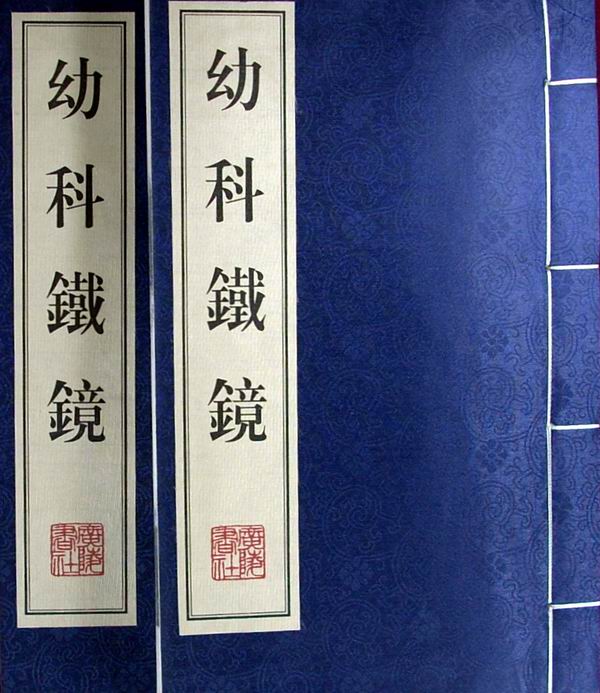 幼科鐵鏡
廣陵書社
幼科鐵鏡
廣陵書社